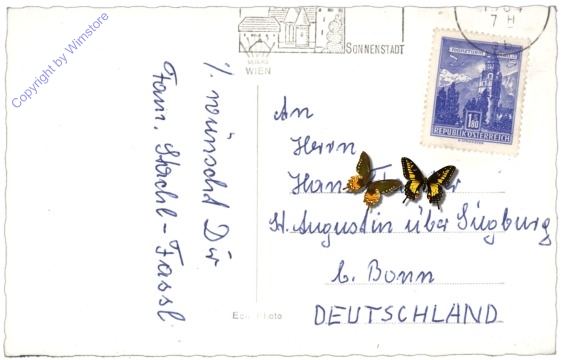 Copyright by Wimstore
SONNENSTADT
WIEN
7 H
REPUBLIK ÖSTERREICH
1.80
wünscht Dir
Fam. Stachl-Fassl
An
Herrn
St. Augustin über Siegburg
b. Bonn
DEUTSCHLAND